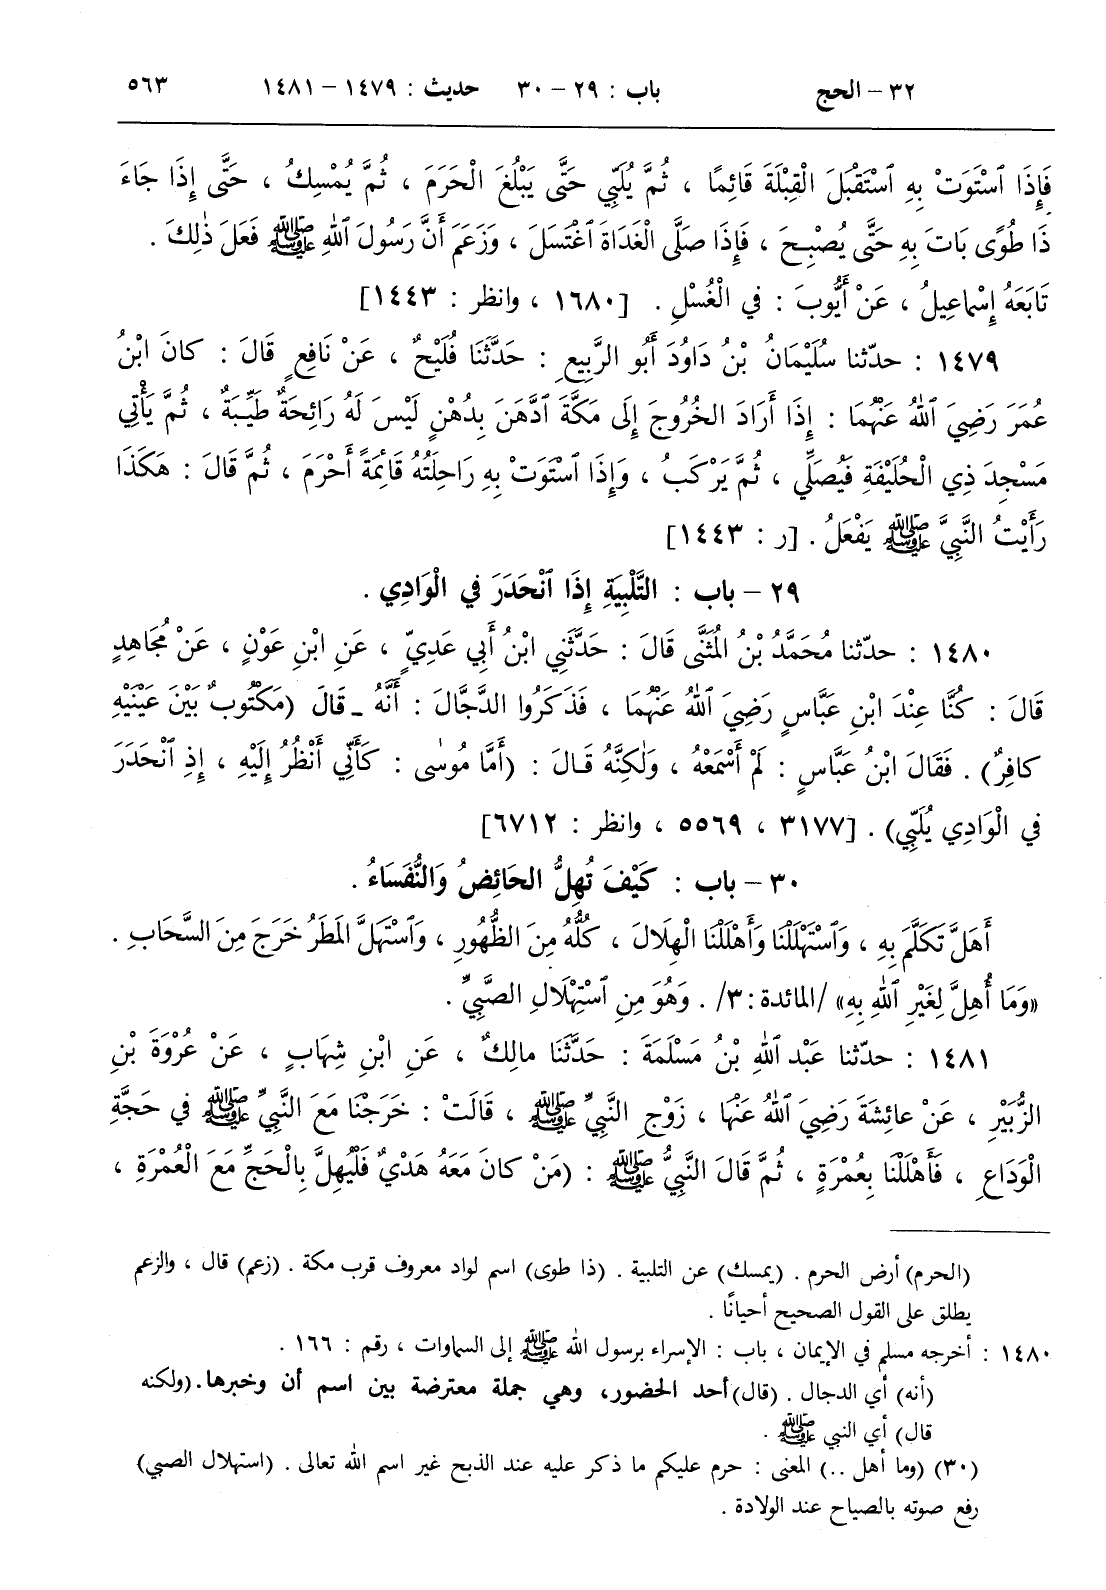 ٣٢ – الحج باب : ٢٩ – ٣٠ حديث : ١٤٧٩ – ١٤٨١ ٥٦٣
فَإِذَا ٱسْتَوَتْ بِهِ ٱسْتَقْبَلَ الْقِبْلَةَ قَائِمًا ، ثُمَّ يُلَبِّي حَتَّى يَبْلُغَ الْحَرَمَ ، ثُمَّ يُمْسِكُ ، حَتَّى إِذَا جَاءَ
ذَا طُوًى بَاتَ بِهِ حَتَّى يُصْبِحَ ، فَإِذَا صَلَّى الْغَدَاةَ ٱغْتَسَلَ ، وَزَعَمَ أَنَّ رَسُولَ ٱللهِ ﷺ فَعَلَ ذٰلِكَ .
تَابَعَهُ إِسْمَاعِيلُ ، عَنْ أَيُّوبَ : في الْغُسْلِ . [١٦٨٠ ، وانظر : ١٤٤٣]
١٤٧٩ : حدّثنا سُلَيْمَانُ بْنُ دَاوُدَ أَبُو الرَّبِيعِ : حَدَّثَنَا فُلَيْحٌ ، عَنْ نَافِعٍ قَالَ : كانَ ابْنُ
عُمَرَ رَضِيَ ٱللهُ عَنْهُمَا : إِذَا أَرَادَ الخُرُوجَ إِلَى مَكَّةَ ٱدَّهَنَ بِدُهْنٍ لَيْسَ لَهُ رَائِحَةٌ طَيِّبَةٌ ، ثُمَّ يَأْتِي
مَسْجِدَ ذِي الْحُلَيْفَةِ فَيُصَلِّي ، ثُمَّ يَرْكَبُ ، وَإِذَا ٱسْتَوَتْ بِهِ رَاحِلَتُهُ قَائِمَةً أَحْرَمَ ، ثُمَّ قَالَ : هَكَذَا
رَأَيْتُ النَّبِيَّ ﷺ يَفْعَلُ . [ر : ١٤٤٣]
٢٩ – باب : التَّلْبِيَةِ إِذَا ٱنْحَدَرَ في الْوَادِي .
١٤٨٠ : حدّثنا مُحَمَّدُ بْنُ الْمُثَنَّى قَالَ : حَدَّثَنِي ابْنُ أَبِي عَدِيٍّ ، عَنِ ابْنِ عَوْنٍ ، عَنْ مُجَاهِدٍ
قَالَ : كُنَّا عِنْدَ ابْنِ عَبَّاسٍ رَضِيَ ٱللهُ عَنْهُمَا ، فَذَكَرُوا الدَّجَّالَ : أَنَّهُ ـ قَالَ (مَكْتُوبٌ بَيْنَ عَيْنَيْهِ
كافِرٌ) . فَقَالَ ابْنُ عَبَّاسٍ : لَمْ أَسْمَعْهُ ، وَلٰكِنَّهُ قَالَ : (أَمَّا مُوسٰى : كَأَنِّي أَنْظُرُ إِلَيْهِ ، إِذِ ٱنْحَدَرَ
في الْوَادِي يُلَبِّي) . [٣١٧٧ ، ٥٥٦٩ ، وانظر : ٦٧١٢]
٣٠ – باب : كَيْفَ تُهِلُّ الحَائِضُ وَالنُّفَسَاءُ .
أَهَلَّ تَكَلَّمَ بِهِ ، وَٱسْتَهْلَلْنَا وَأَهْلَلْنَا الْهِلَالَ ، كُلُّهُ مِنَ الظُّهُورِ ، وَٱسْتَهَلَّ المَطَرُ خَرَجَ مِنَ السَّحَابِ .
«وَمَا أُهِلَّ لِغَيْرِ ٱللهِ بِهِ» /المائدة : ٣/ . وَهُوَ مِنِ ٱسْتِهْلَالِ الصَّبِيِّ .
١٤٨١ : حدّثنا عَبْد ٱللهِ بْنُ مَسْلَمَةَ : حَدَّثَنَا مالِكٌ ، عَنِ ابْنِ شِهَابٍ ، عَنْ عُرْوَةَ بْنِ
الزُّبَيْرِ ، عَنْ عائِشَةَ رَضِيَ ٱللهُ عَنْهَا ، زَوْجِ النَّبِيِّ ﷺ ، قَالَتْ : خَرَجْنَا مَعَ النَّبِيِّ ﷺ في حَجَّةِ
الْوَدَاعِ ، فَأَهْلَلْنَا بِعُمْرَةٍ ، ثُمَّ قَالَ النَّبِيُّ ﷺ : (مَنْ كانَ مَعَهُ هَدْيٌ فَلْيُهِلَّ بِالْحَجِّ مَعَ الْعُمْرَةِ ،
(الحرم) أرض الحرم . (يمسك) عن التلبية . (ذا طوى) اسم لواد معروف قرب مكة . (زعم) قال ، والزعم
يطلق على القول الصحيح أحيانًا .
١٤٨٠ : أخرجه مسلم في الإيمان ، باب : الإسراء برسول الله ﷺ إلى السماوات ، رقم : ١٦٦ .
(أنه) أي الدجال . (قال) أحد الحضور، وهي جملة معترضة بين اسم أن وخبرها. (ولكنه
قال) أي النبي ﷺ .
(٣٠) (وما أهل ..) المعنى : حرم عليكم ما ذكر عليه عند الذبح غير اسم الله تعالى . (استهلال الصبي)
رفع صوته بالصياح عند الولادة .